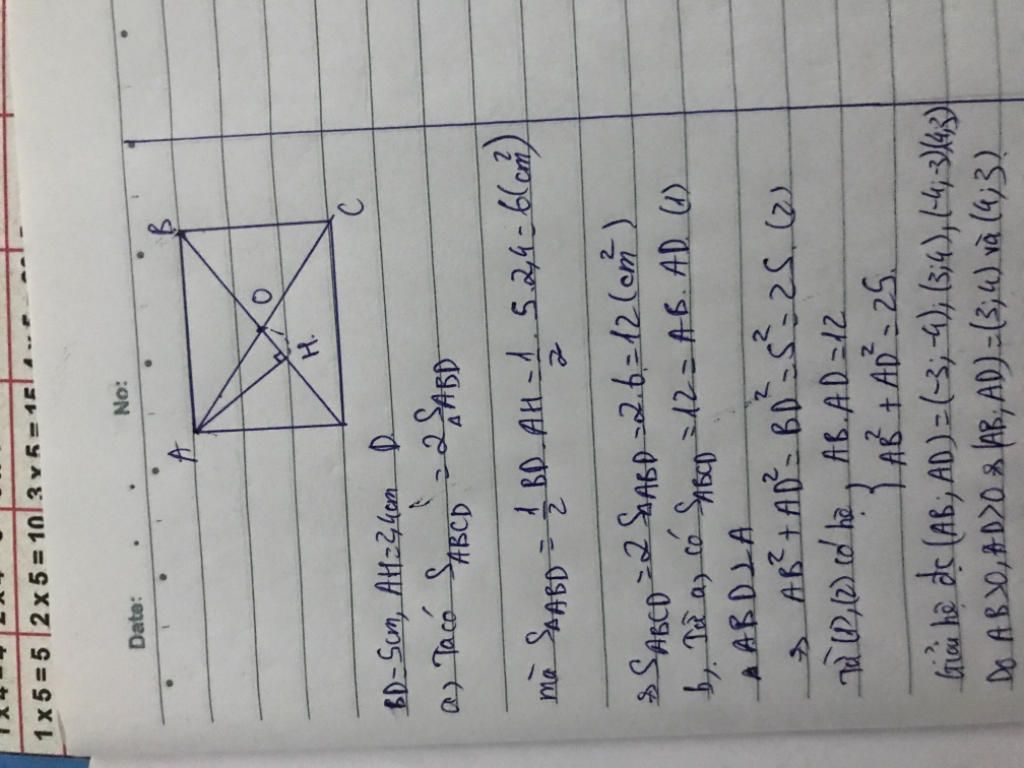 1 x 5 = 5 2 x 5 = 10 3 x 5 = 15
Date: No:
A B
O
H.
D C
BD=5cm, AH=2,4cm
a, Ta có S ABCD = 2 S ΔABD
mà S ΔABD = 1/2 BD. AH = 1/2 . 5. 2,4 = 6 (cm²)
=> S ABCD = 2 S ΔABD = 2.6 = 12 (cm²)
b, Từ a, có S ABCD = 12 = AB. AD (1)
Δ ABD ⊥ A
=> AB² + AD² = BD² = 5² = 25. (2)
Từ (1), (2) có hệ { AB. AD = 12
AB² + AD² = 25.
Giải hệ đc (AB; AD) = (-3; -4); (3; 4), (-4, -3) (4, 3)
Do AB>0, AD>0 => (AB, AD) = (3; 4) và (4; 3)